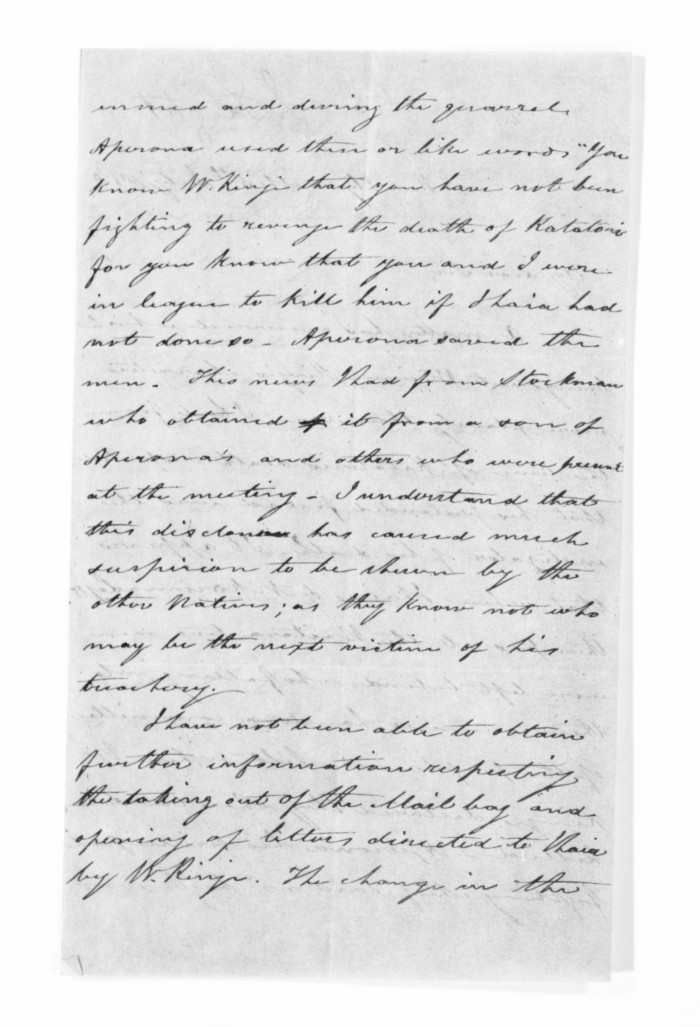 ensued and during the quarrel,
Aperona used these or like words "You
know W. Kingi that you have not been
fighting to revenge the death of Katatori
for you know that you and I were
in league to kill him if Ihaia had
not done so - Aperona saved the
men. This news I had from Stockman
who obtained it from a son of
Aperona's and others who were present
at the meeting - I understand that
this disclosure has caused much
suspicion to be shewn by the
other Natives; as they know not who
may be the next victim of his
treachery.
I have not been able to obtain
further information respecting
the taking out of the Mail bag and
opening of letters directed to Ihaia
by W. Kingi. The change in the